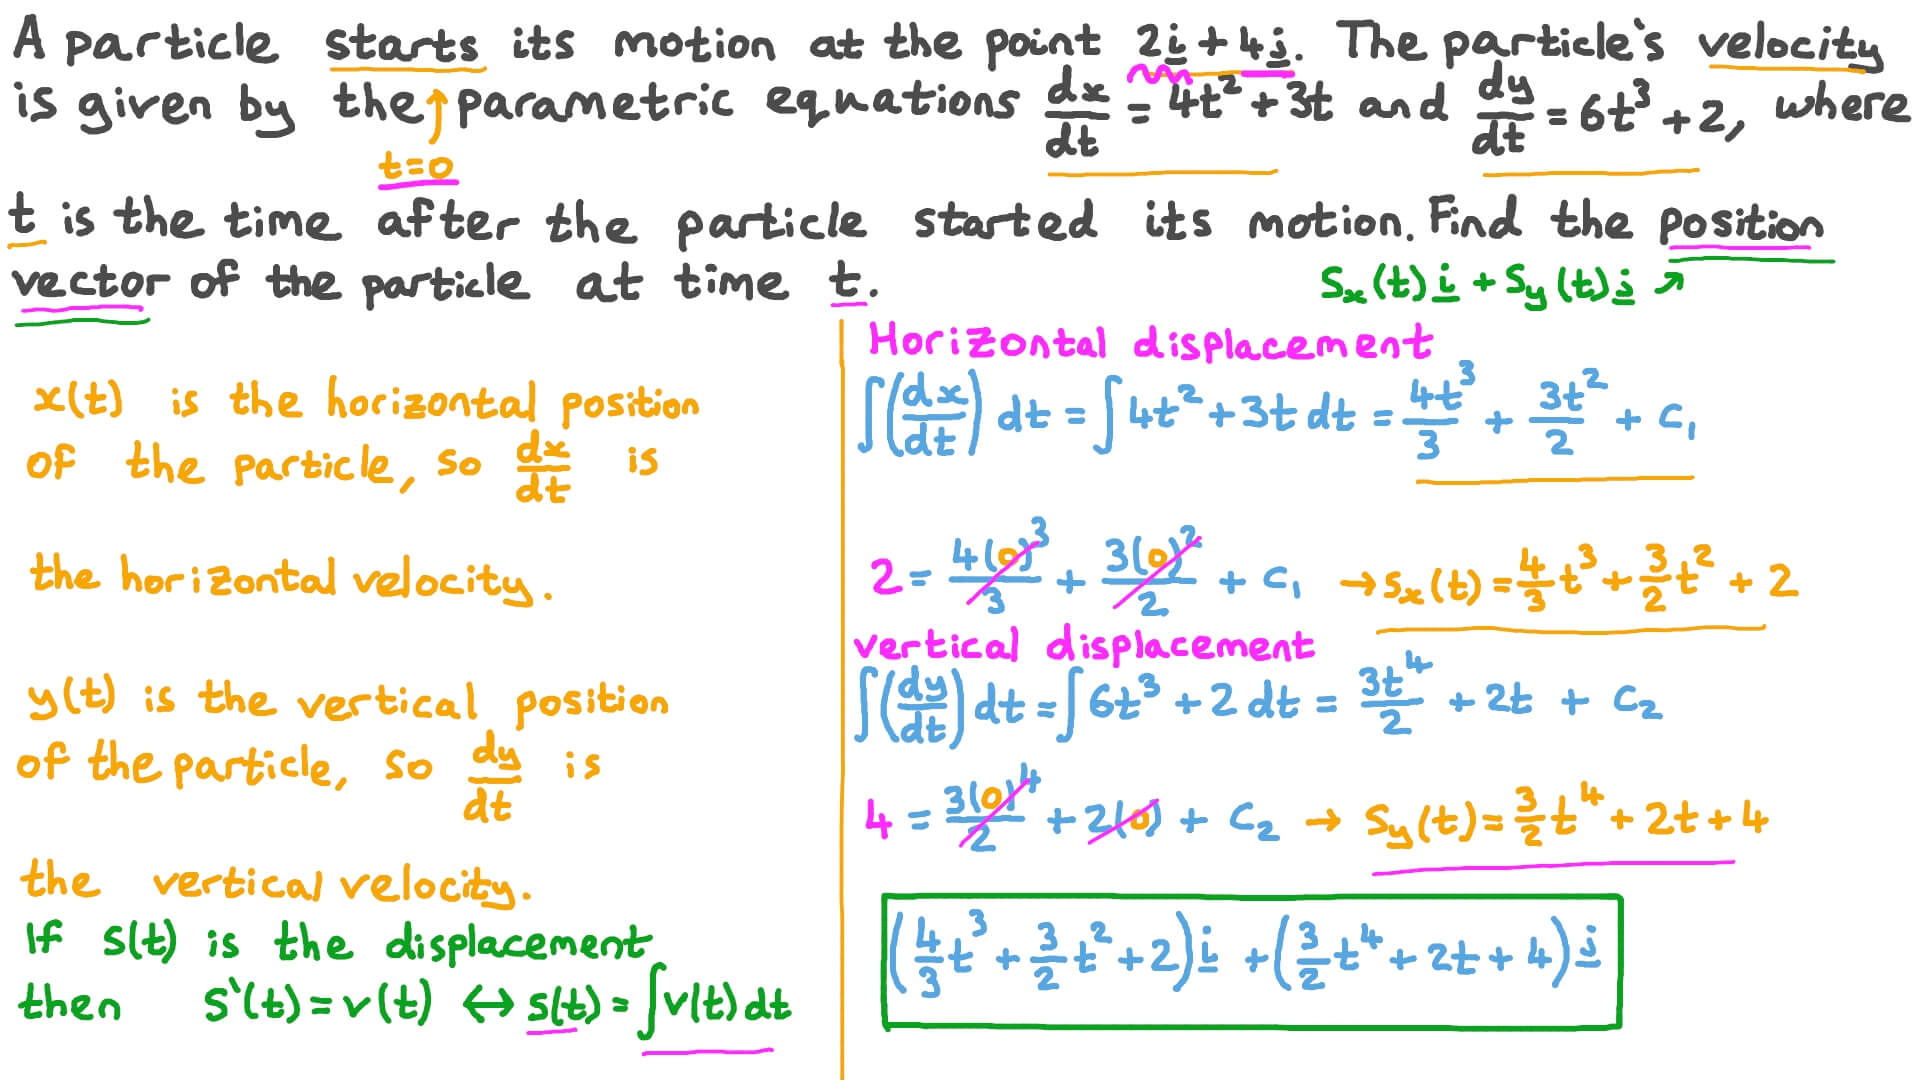 A particle starts its motion at the point 2i + 4j. The particle's velocity
is given by the parametric equations dx/dt = 4t² + 3t and dy/dt = 6t³ + 2, where
t=0
t is the time after the particle started its motion. Find the position
vector of the particle at time t.
Sx(t)i + Sy(t)j ↗
x(t) is the horizontal position
of the particle, so dx/dt is
the horizontal velocity.
y(t) is the vertical position
of the particle, so dy/dt is
the vertical velocity.
If s(t) is the displacement
then s'(t) = v(t) ↔ s(t) = ∫v(t) dt
Horizontal displacement
∫(dx/dt) dt = ∫4t² + 3t dt = 4t³/3 + 3t²/2 + C₁
2 = 4(0)³/3 + 3(0)²/2 + C₁ → Sx(t) = 4/3 t³ + 3/2 t² + 2
vertical displacement
∫(dy/dt) dt = ∫6t³ + 2 dt = 3t⁴/2 + 2t + C₂
4 = 3(0)⁴/2 + 2(0) + C₂ → Sy(t) = 3/2 t⁴ + 2t + 4
(4/3 t³ + 3/2 t² + 2)i + (3/2 t⁴ + 2t + 4)j